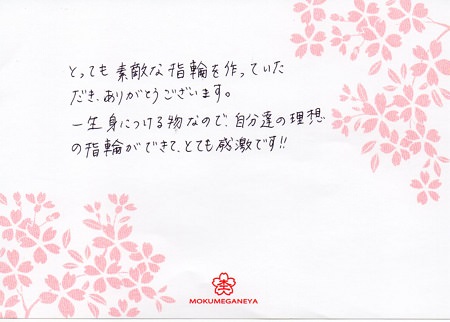 とっても素敵な指輪を作っていた
だき、ありがとうございます。
一生身につける物なので、自分達の理想
の指輪ができて、とても感激です!!
MOKUMEGANEYA